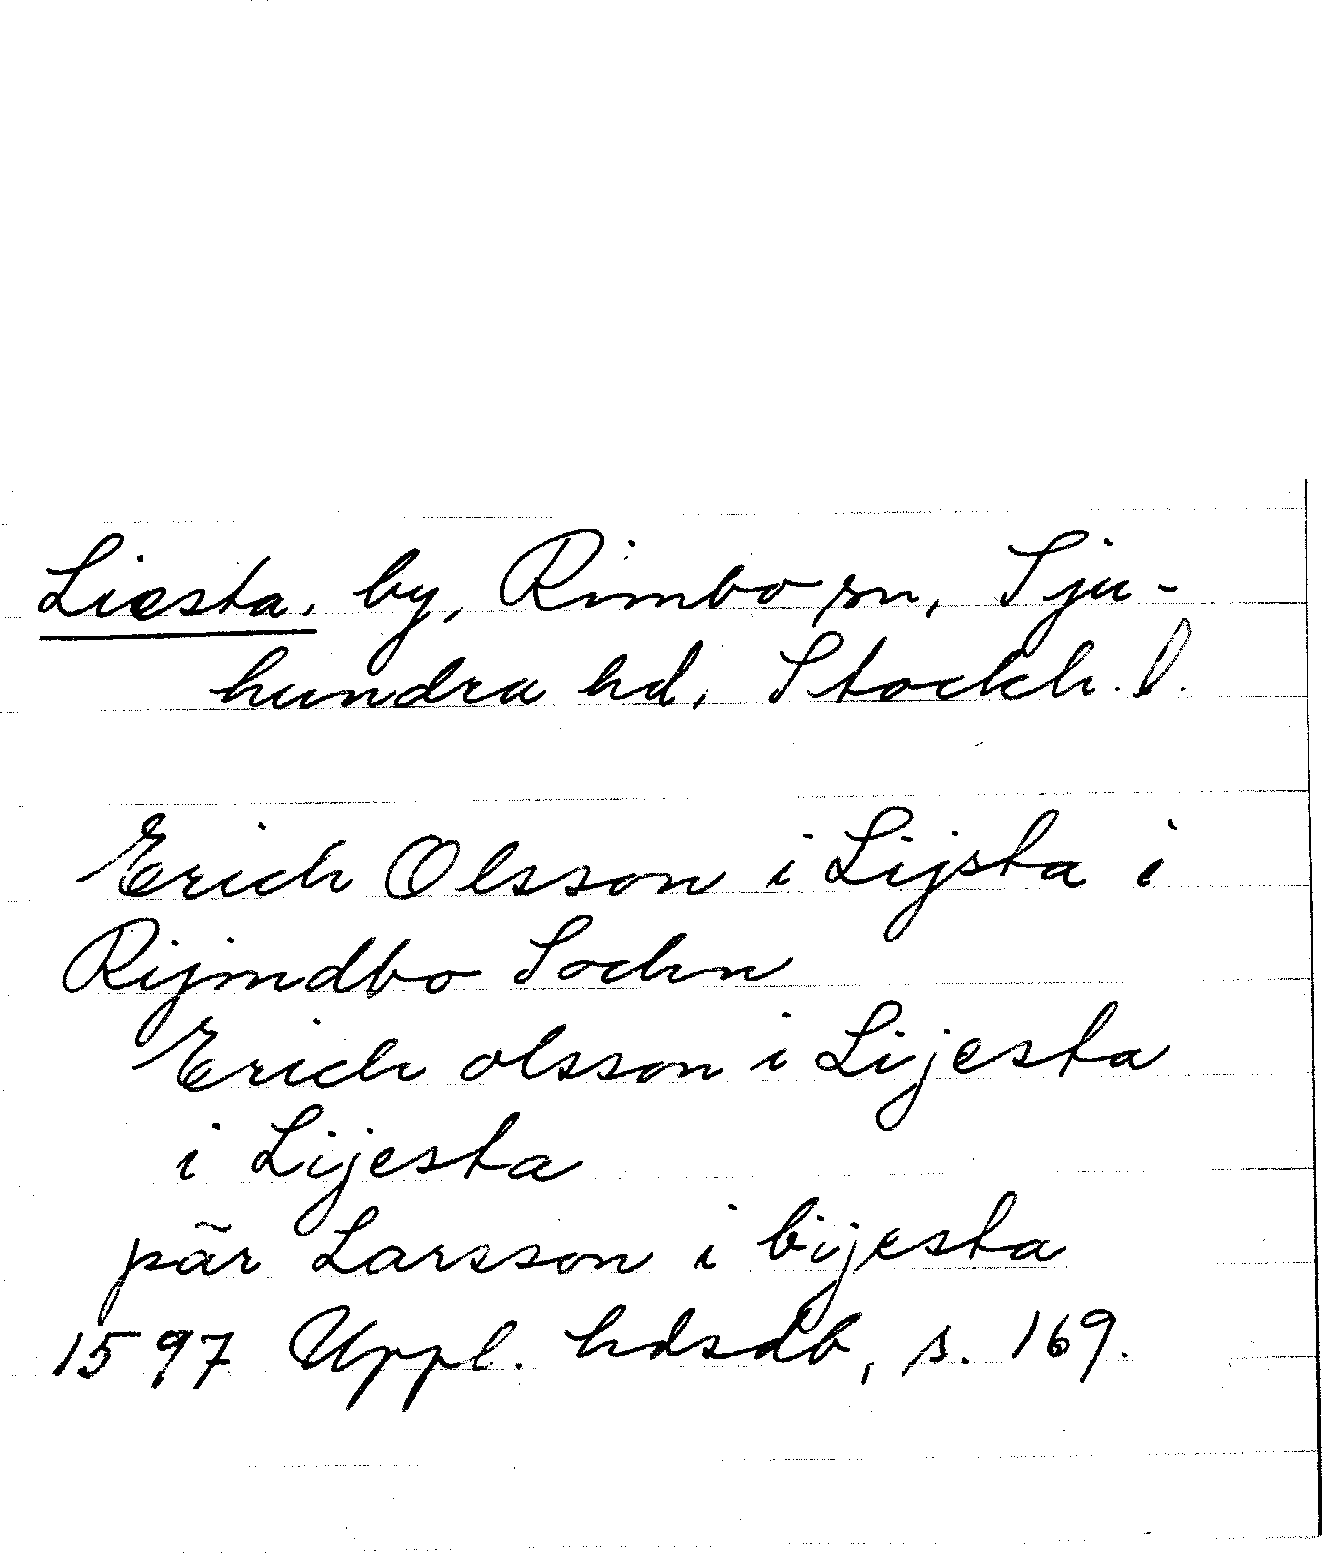 Liesta, by, Rimbo sn, Sju-
hundra hd, Stockh. l.
Erich Olsson i Lijsta i
Rijmdbo Sochn
Erich olsson i Lijesta
i Lijesta
pär Larsson i bijesta
1597 Uppl. hdsdb, s. 169.